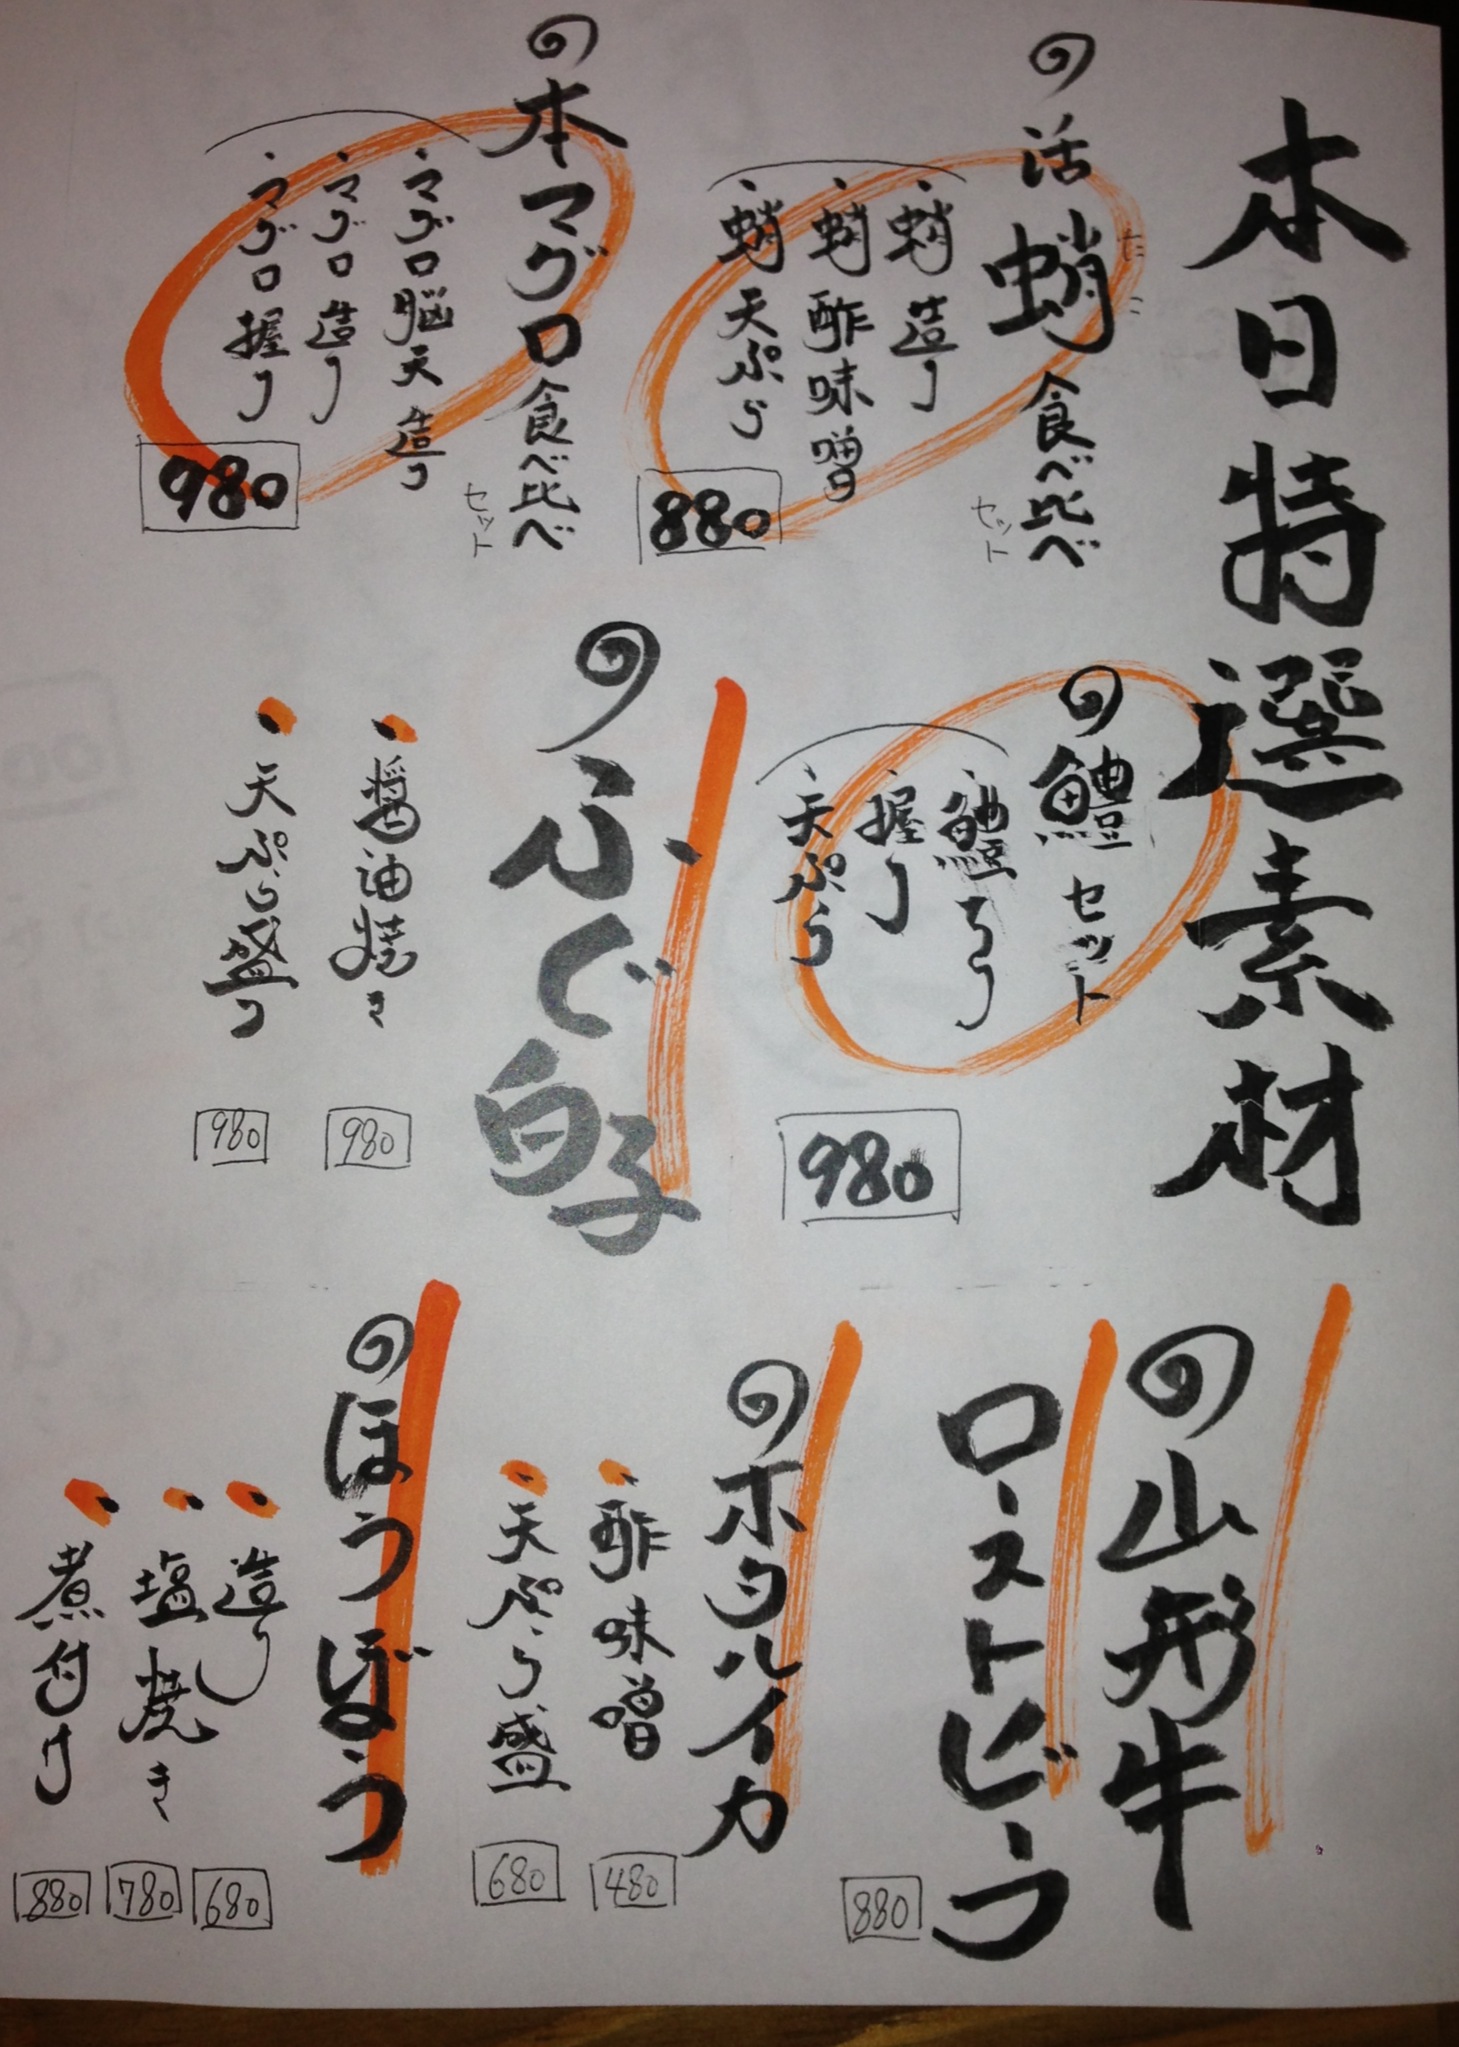 本日特選素材
活蛸食べ比べ
たこ
セット
・蛸造り
・蛸酢味噌
・蛸天ぷら
880
本マグロ食べ比べ
セット
・マグロ脳天造り
・マグロ造り
・マグロ握り
980
鱧セット
・握り
・天ぷら
980
ふぐ白子
・醤油焼き
980
・天ぷら盛り
980
山形牛
ローストビーフ
880
ホタルイカ
・酢味噌
480
・天ぷら盛
680
ほうぼう
・造り
680
・塩焼き
780
・煮付け
880